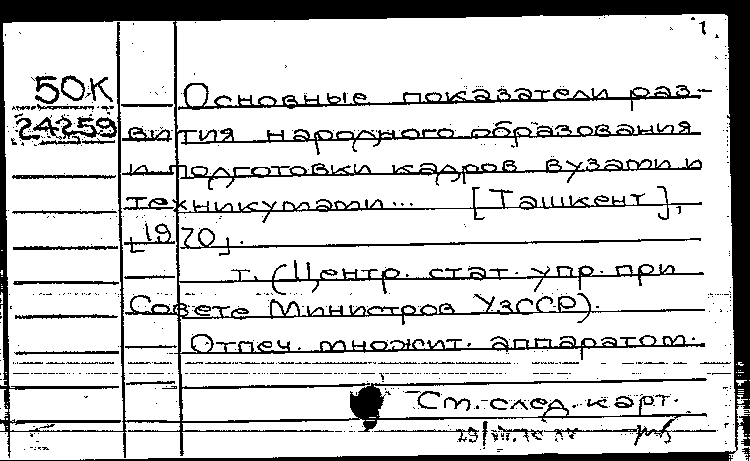 1
50К Основные показатели раз-
24259 вития народного образования
и подготовки кадров вузами и
техникумами... [Ташкент],
[1970].
т. (Центр. стат. упр. при
Совете Министров УзССР).
Отпеч. множит. аппаратом.
См. след. карт.